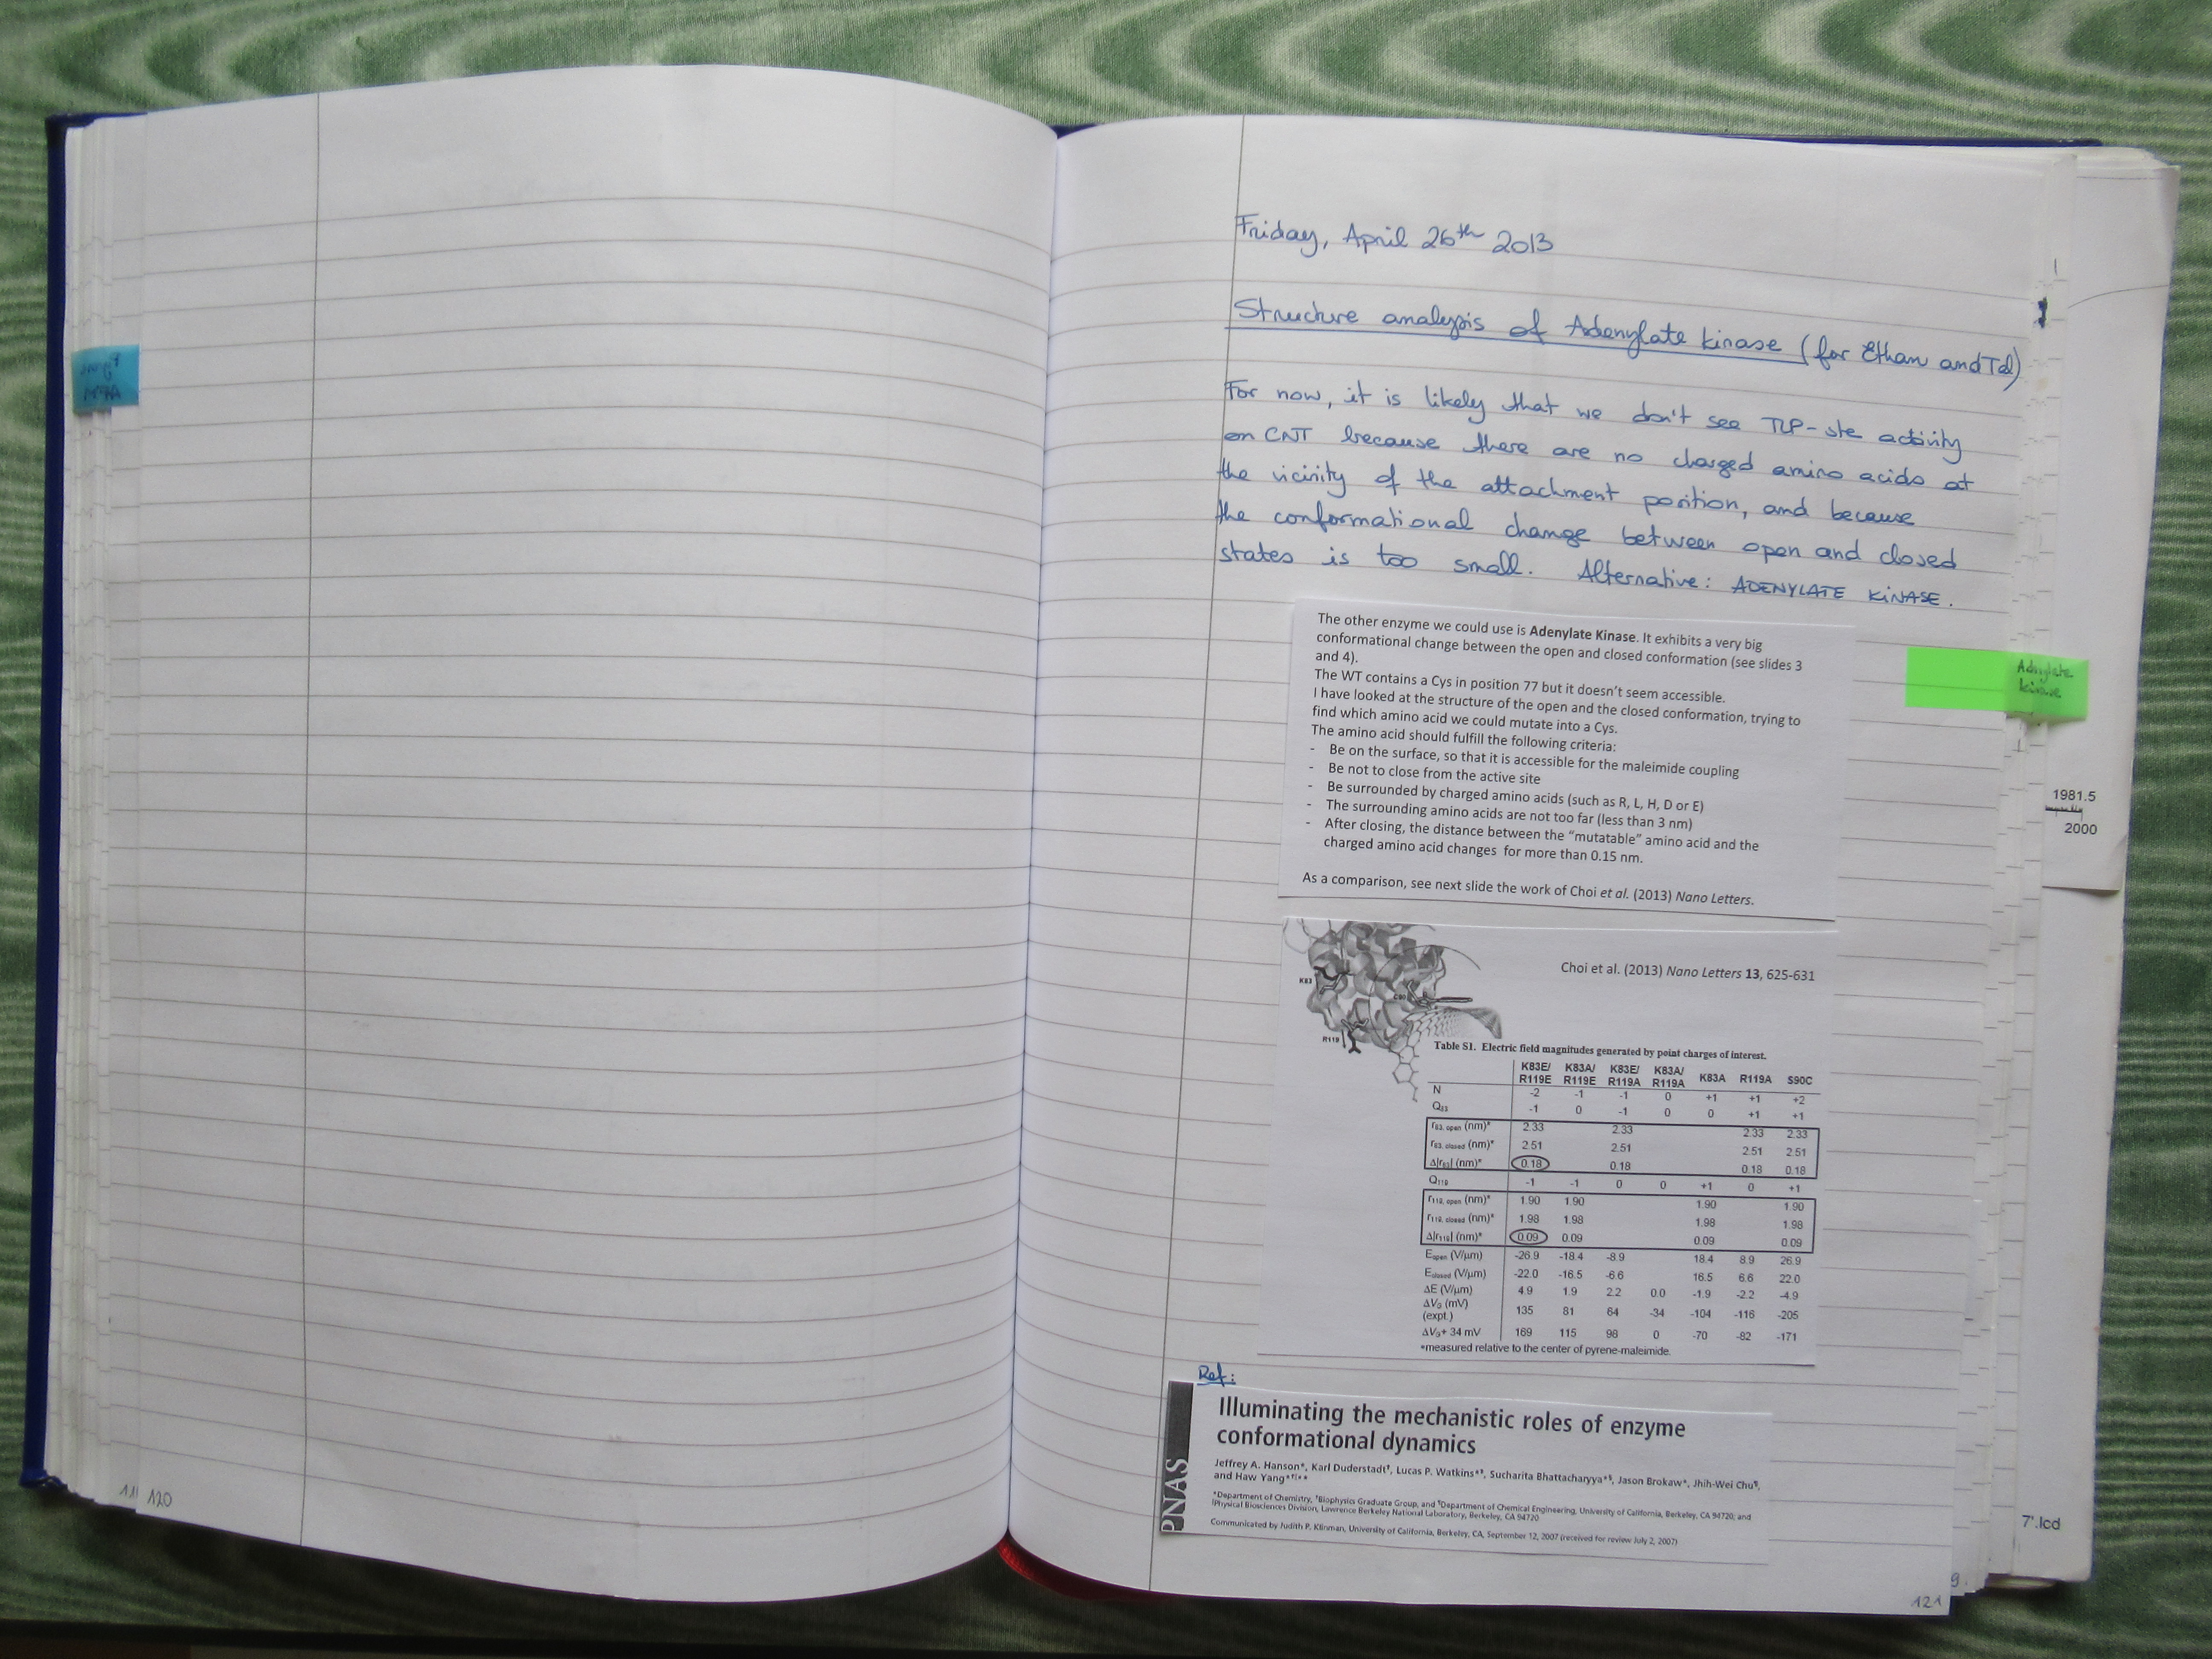 Friday, April 26th 2013
Structure analysis of Adenylate kinase (for Ethan and Tal)
For now, it is likely that we don't see TLP-ste activity
on CNT because there are no charged amino acids at
the vicinity of the attachment position, and because
the conformational change between open and closed
states is too small. Alternative: ADENYLATE KINASE.
The other enzyme we could use is Adenylate Kinase. It exhibits a very big
conformational change between the open and closed conformation (see slides 3
and 4).
The WT contains a Cys in position 77 but it doesn't seem accessible.
I have looked at the structure of the open and the closed conformation, trying to
find which amino acid we could mutate into a Cys.
The amino acid should fulfill the following criteria:
- Be on the surface, so that it is accessible for the maleimide coupling
- Be not to close from the active site
- Be surrounded by charged amino acids (such as R, L, H, D or E)
- The surrounding amino acids are not too far (less than 3 nm)
- After closing, the distance between the "mutatable" amino acid and the
charged amino acid changes for more than 0.15 nm.
As a comparison, see next slide the work of Choi et al. (2013) Nano Letters.
Adenylate
kinase
1981.5
2000
Choi et al. (2013) Nano Letters 13, 625-631
K83
C90
R119
Table S1. Electric field magnitudes generated by point charges of interest.
K83E/ K83A/ K83E/ K83A/ K83A R119A S90C
R119E R119E R119A R119A
N -2 -1 -1 0 +1 +1 +2
Q83 -1 0 -1 0 0 +1 +1
r83, open (nm)* 2.33 2.33 2.33 2.33
r83, closed (nm)* 2.51 2.51 2.51 2.51
Δ|r83| (nm)* 0.18 0.18 0.18 0.18
Q119 -1 -1 0 0 +1 0 +1
r119, open (nm)* 1.90 1.90 1.90 1.90
r119, closed (nm)* 1.98 1.98 1.98 1.98
Δ|r119| (nm)* 0.09 0.09 0.09 0.09
Eopen (V/µm) -26.9 -18.4 -8.9 18.4 8.9 26.9
Eclosed (V/µm) -22.0 -16.5 -6.6 16.5 6.6 22.0
ΔE (V/µm) 4.9 1.9 2.2 0.0 -1.9 -2.2 -4.9
ΔVG (mV)
(expt.) 135 81 64 -34 -104 -116 -205
ΔVG+ 34 mV 169 115 98 0 -70 -82 -171
*measured relative to the center of pyrene-maleimide.
Ref:
PNAS
Illuminating the mechanistic roles of enzyme
conformational dynamics
Jeffrey A. Hanson*, Karl Duderstadt†, Lucas P. Watkins*‡, Sucharita Bhattacharyya*§, Jason Brokaw*, Jhih-Wei Chu¶,
and Haw Yang*
*Department of Chemistry, †Biophysics Graduate Group, and ¶Department of Chemical Engineering, University of California, Berkeley, CA 94720; and
Physical Biosciences Division, Lawrence Berkeley National Laboratory, Berkeley, CA 94720
Communicated by Judith P. Klinman, University of California, Berkeley, CA, September 12, 2007 (received for review July 2, 2007)
7'.lcd
120
9
121